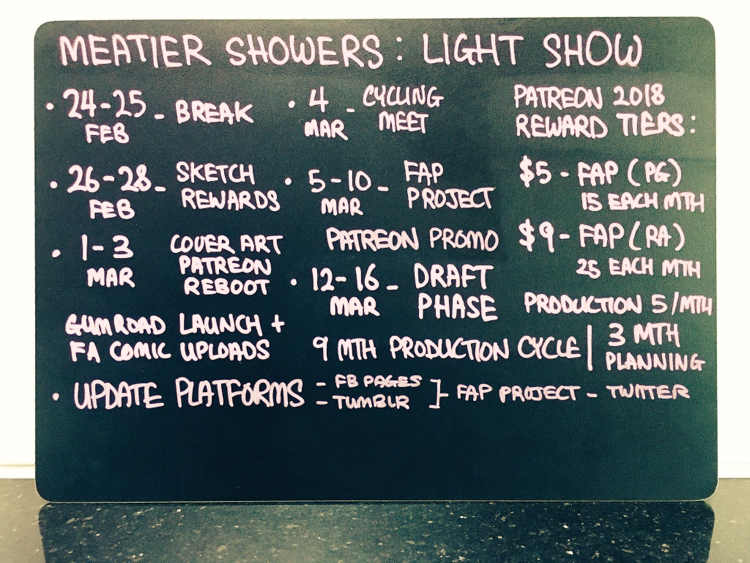 MEATIER SHOWERS: LIGHT SHOW
• 24-25 FEB - BREAK
• 26-28 - SKETCH
FEB REWARDS
• 1-3 COVER ART
MAR PATREON
REBOOT
GUMROAD LAUNCH +
FA COMIC UPLOADS
• 4 - CYCLING
MAR MEET
• 5-10 - FAP
MAR PROJECT
PATREON PROMO
• 12-16 - DRAFT
MAR PHASE
PATREON 2018
REWARD TIERS:
$5 - FAP (PG)
15 EACH MTH
$9 - FAP (RA)
25 EACH MTH
PRODUCTION 5/MTH
9 MTH PRODUCTION CYCLE | 3 MTH
PLANNING
• UPDATE PLATFORMS = FB PAGES
TUMBLR ] - FAP PROJECT - TWITTER